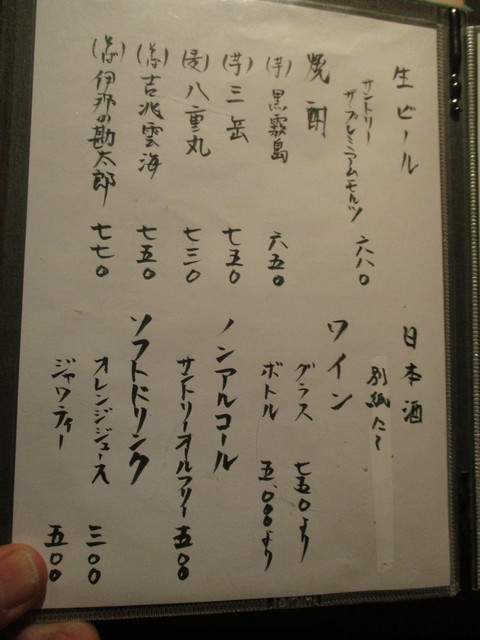 生ビール
サントリー
ザ・プレミアムモルツ 六八〇
焼酎
(芋) 黒霧島 六五〇
(芋) 三岳 七五〇
(麦) 八重丸 七三〇
(そば) 吉兆雲海 七五〇
(そば) 伊那の勘太郎 七七〇
日本酒
別紙にて
ワイン
グラス 七五〇より
ボトル 五、〇〇〇より
ノンアルコール
サントリーオールフリー 五〇〇
ソフトドリンク
オレンジジュース 三〇〇
ジャワティー 五〇〇